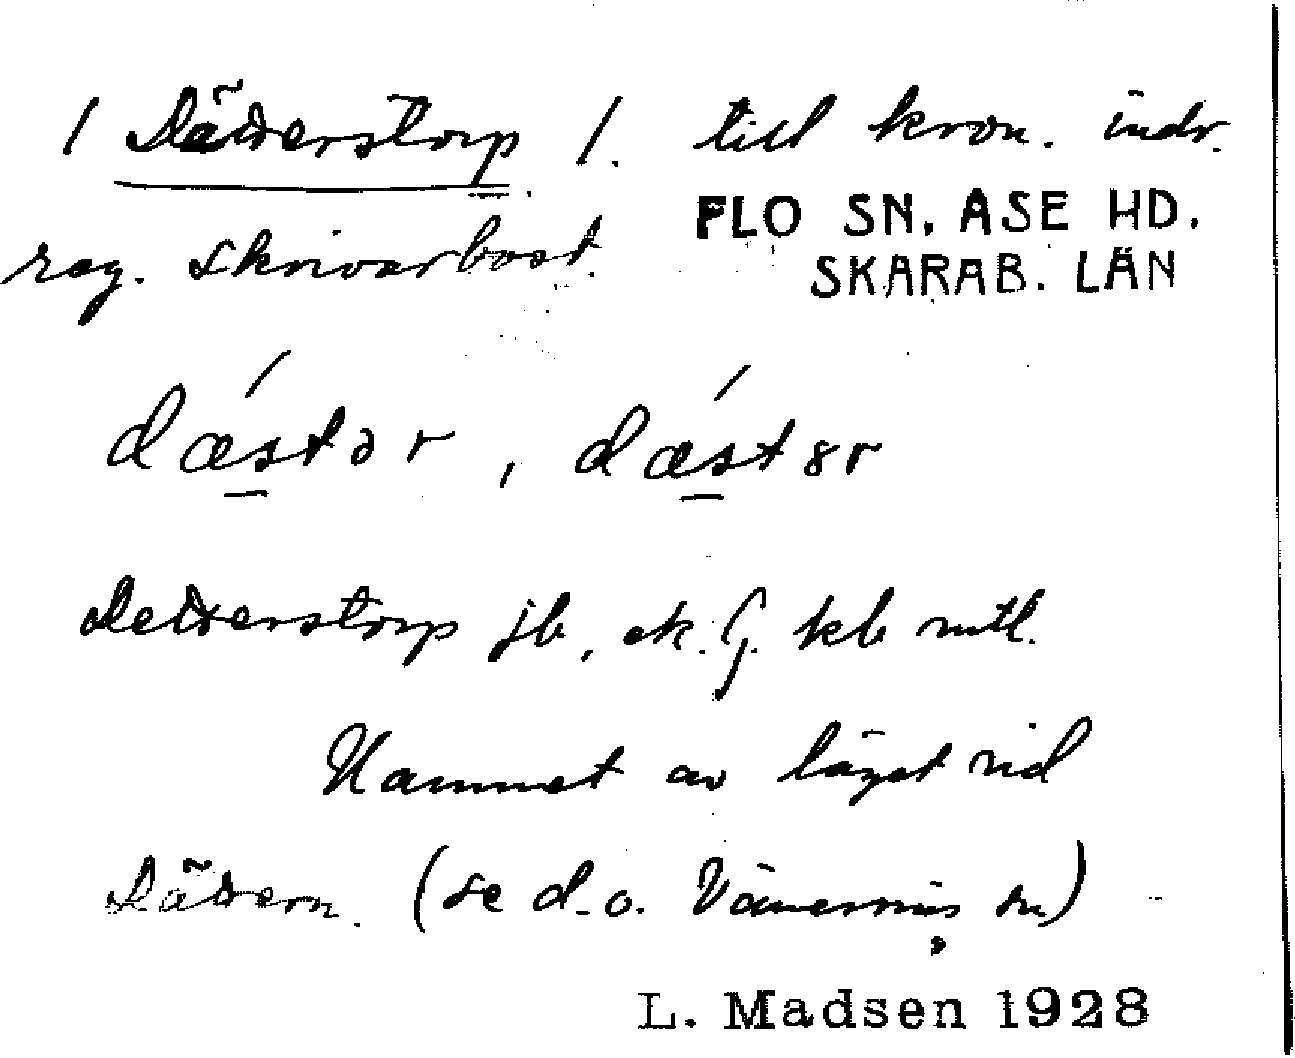 1 Dätterstorp 1. till kron. indr.
reg. skrivarbost.
FLO SN. ASE HD.
SKARAB. LÄN
dæstər, dæst8r
Detterstorp jb, ek. G. kb mtl.
Namnet av läget vid
Dättern. (se d.o. Vänersnäs sn)
L. Madsen 1928